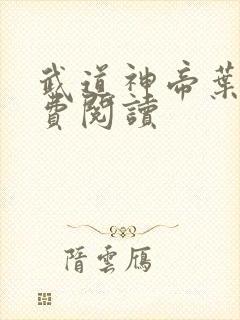 武道神帝葉
費閱讀
階雲鴈